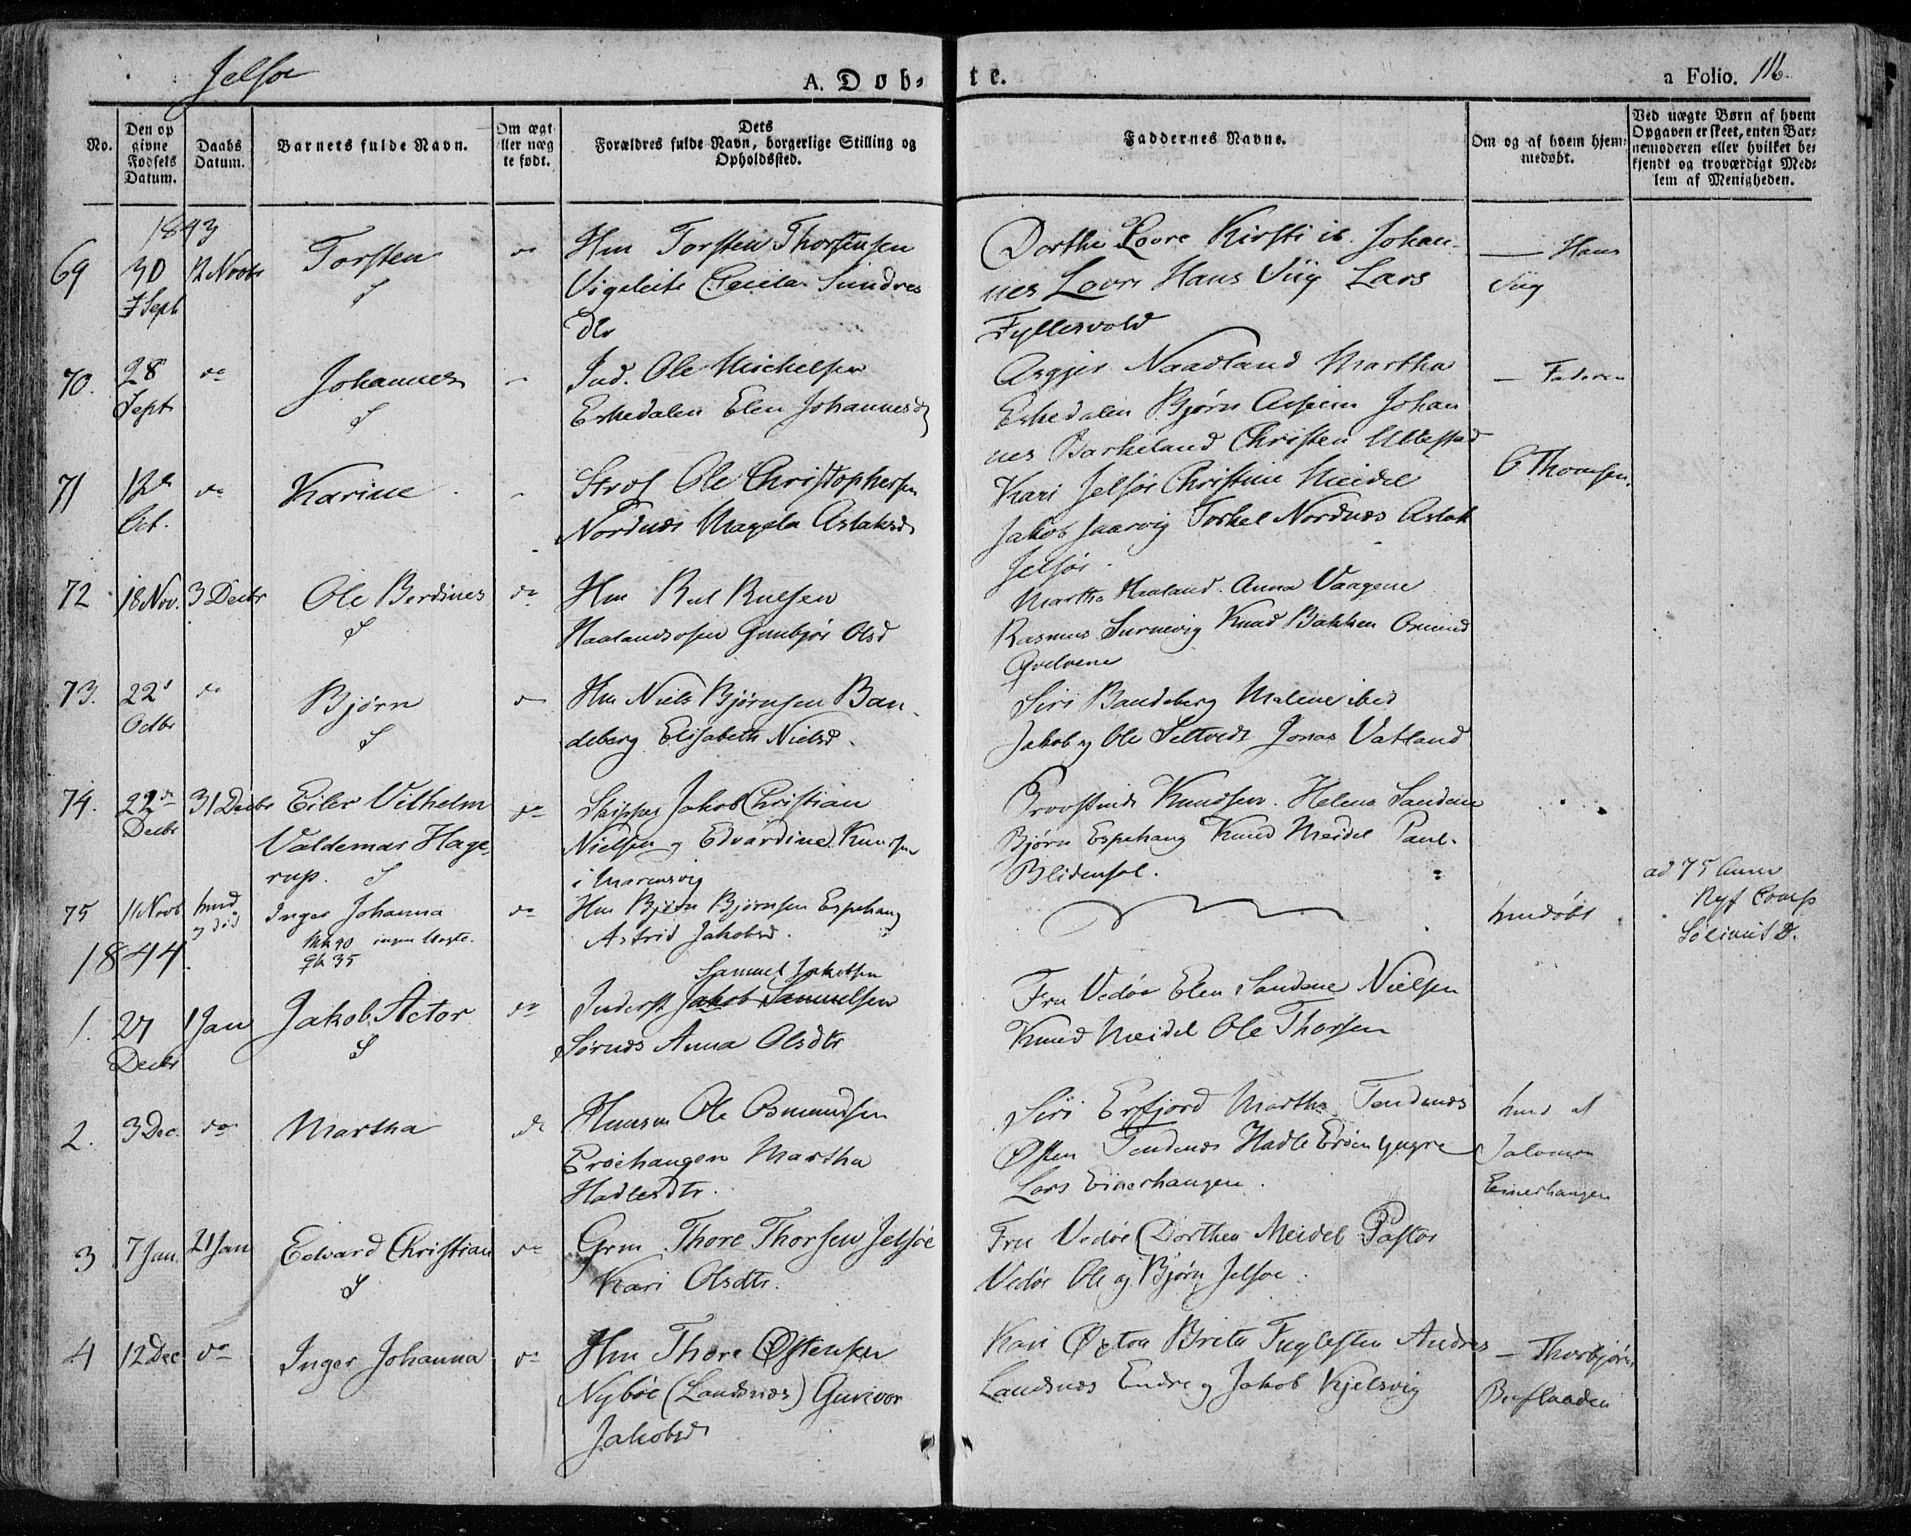 Jelsøe
A. Døb- te.
a Folio. 116.
No.
Den op
givne
Fødsels
Datum.
Daabs
Datum.
Barnets fulde Navn.
Om ægt
eller uæg
te født.
Dets
Forældres fulde Navn, borgerlige Stilling og
Opholdssted.
Faddernes Navne.
Om og af hvem hjem-
medøbt.
Ved uægte Børn af hvem
Opgaven er skeet, enten Bar-
nemoderen eller hvilket be-
kjendt og troværdigt Med-
lem af Menigheden.
1843
69 30 Sept 12 Novbr Torsten do Hm Torsten Thorstensen
Vigeleite Cecilia Sundres
dtr
Dorthe Lovre Kirsti ib. Johan-
nes Lovre Hans Viig Lars
Fyllesvold
— Hans
Viig
70. 28 Sept do Johannes - Ind. Ole Michelsen
Eskedalen Elen Johannesd
Asgjer Naadland Martha
Eskedalen Bjørn Aaseim Johan
nes Barkeland Christen Ullestad
— Faderen
71 12te Oct. do Karine - Strof Ole Christophersen
Nordnæs Magela Aslaksd
Kari Jelsøe Christine Meidel
Jakob Jaarvig Torkel Nordnæs Aslak
Jelsøe.
O Thomsen.
72 18 Nov. 3 Decbr Ole Berdines do Hm Rul Rulsen
Haalandsosen Gunbjør Olsd
Martha Haaland. Anna Vaagene
Rasmus Knud Bakken Osmund
Qvelvene
73. 22d Octbr do Bjørn do Hm Niels Bjørnsen Ban-
deberg Elisabeth Nielsd.
Siri Bandeberg Malene ibid
Jakob og Ole Seltveit Jonas Vatland
74. 22de Decbr 31 Decbr Eiler Vilhelm
Valdemar Hage-
rup.
do Skipper Jakob Christian
Nielsen og Edvardine Knudsen
i Marensvig
Provstinde Knudsen. Helene Sandene
Bjørn Espehaug Knud Meidel Paul
Blidensol.
75 11 Novb hmd
og død
Inger Johanna
do Hm Bjørn Bjørnsen Espehaug
Astrid Jakobsd.
hmdøbt
ad 75
1844.
1. 27 Decbr 1 Jan Jakob Actor do Samuel Jakobsen
Inderst Jakob Samuelsen
Sørnæs Anna Olsdtr
Fru Vedøe Elen Sandene Nielsen
Knud Meidel Ole Thorsen
2. 3 Dec. do Martha do Huusm Ole Osmundsen
Erøehaugen Martha
Hadlesdtr.
Siri Erfjord Martha Tendenæs
Østen Tendenæs Hadle Erøen yngre
Lars Einerhaugen.
hmd af
Salomon
Einerhaugen
3 7 Jan. 21 Jan Edvard Christian do Grm Thore Thorsen Jelsøe
Kari Olsdtr.
Fru Vedøe Dorthea Meidel Pastor
Vedøe Ole og Bjørn Jelsøe.
4 12 Dec do Inger Johanna do Hm Thore Østensen
Nybøe (Landsnæs) Gurivor
Jakobsd
Kari Brita Fuglesten Andres
Landsnæs Endre og Jakob Kjelsvig
— Thorbjørn